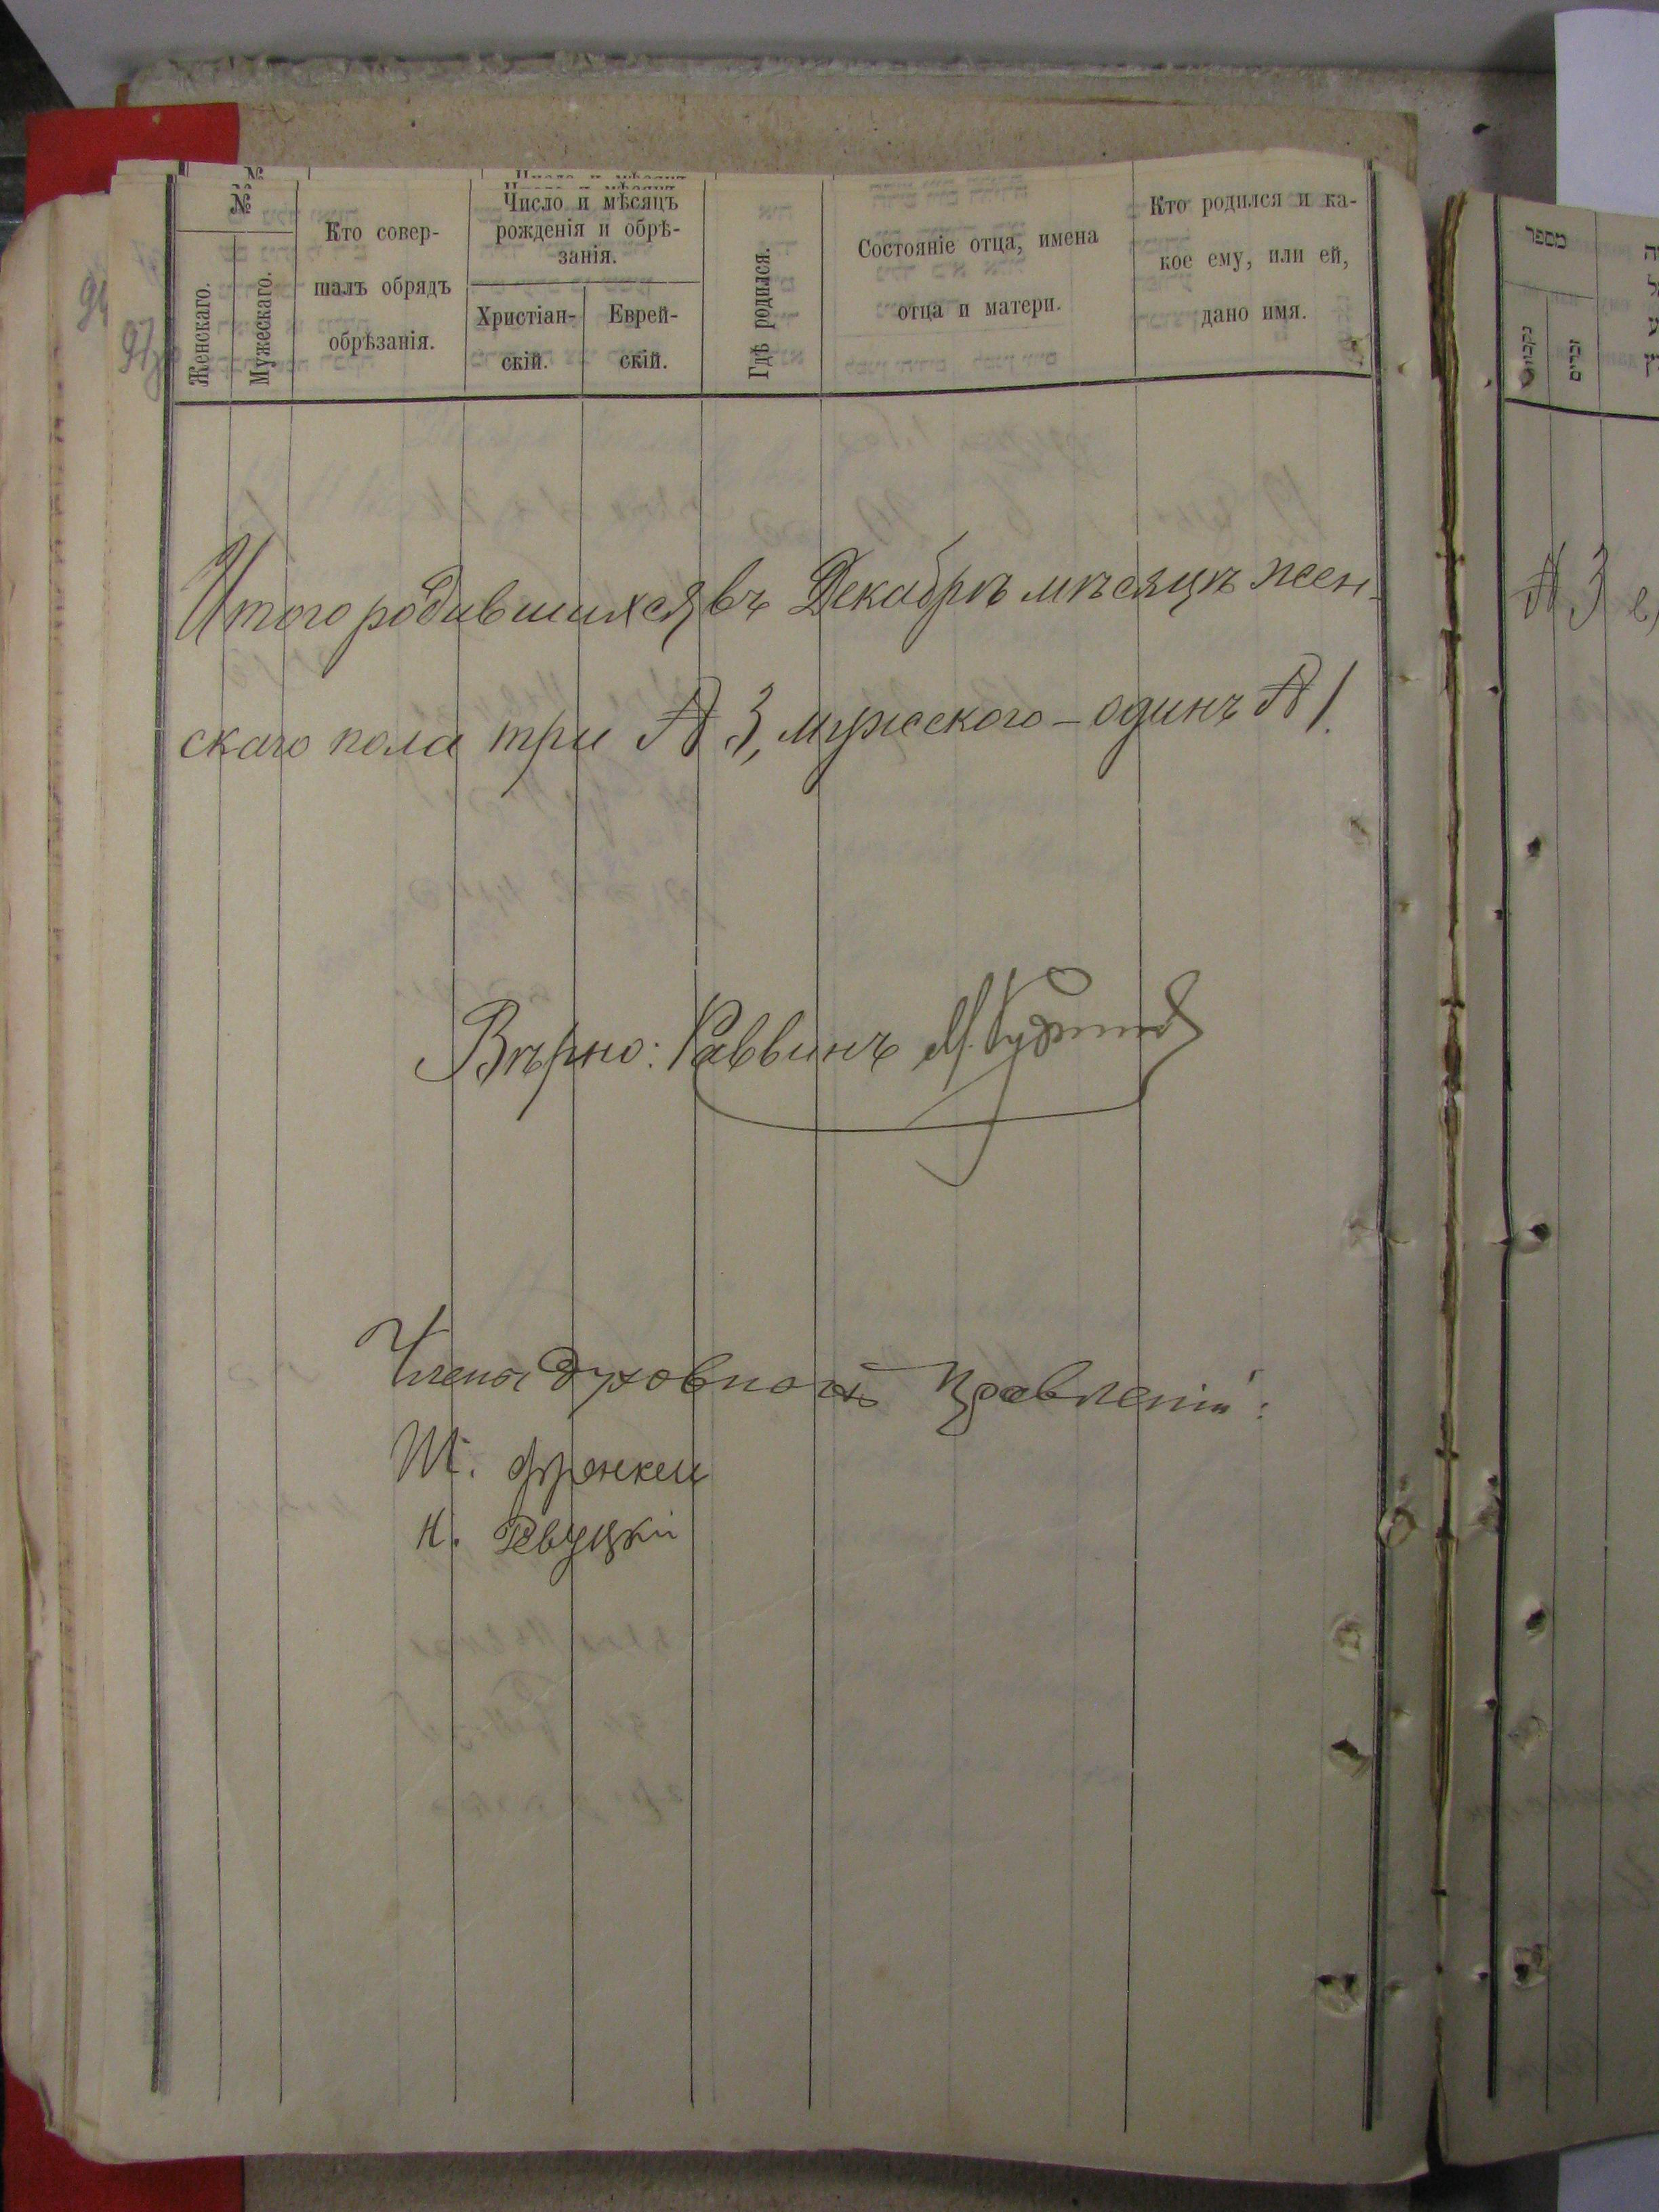 №
Женскаго.
Мужескаго.
Кто совер-
шалъ обрядъ
обрѣзанія.
Число и мѣсяцъ
рожденія и обрѣ-
занія.
Христіан-
скій.
Еврей-
скій.
Гдѣ родился.
Состояніе отца, имена
отца и матери.
Кто родился и ка-
кое ему, или ей,
дано имя.
Итого родившихся въ Декабрѣ мѣсяцѣ жен-
скаго пола три № 3, мужского – одинъ № 1.
Вѣрно: Раввинъ
Члены духовнаго правленія:
Ш. Френкель
Н. Ревуцкій
מספר
נקבות
זכרים
№ 3